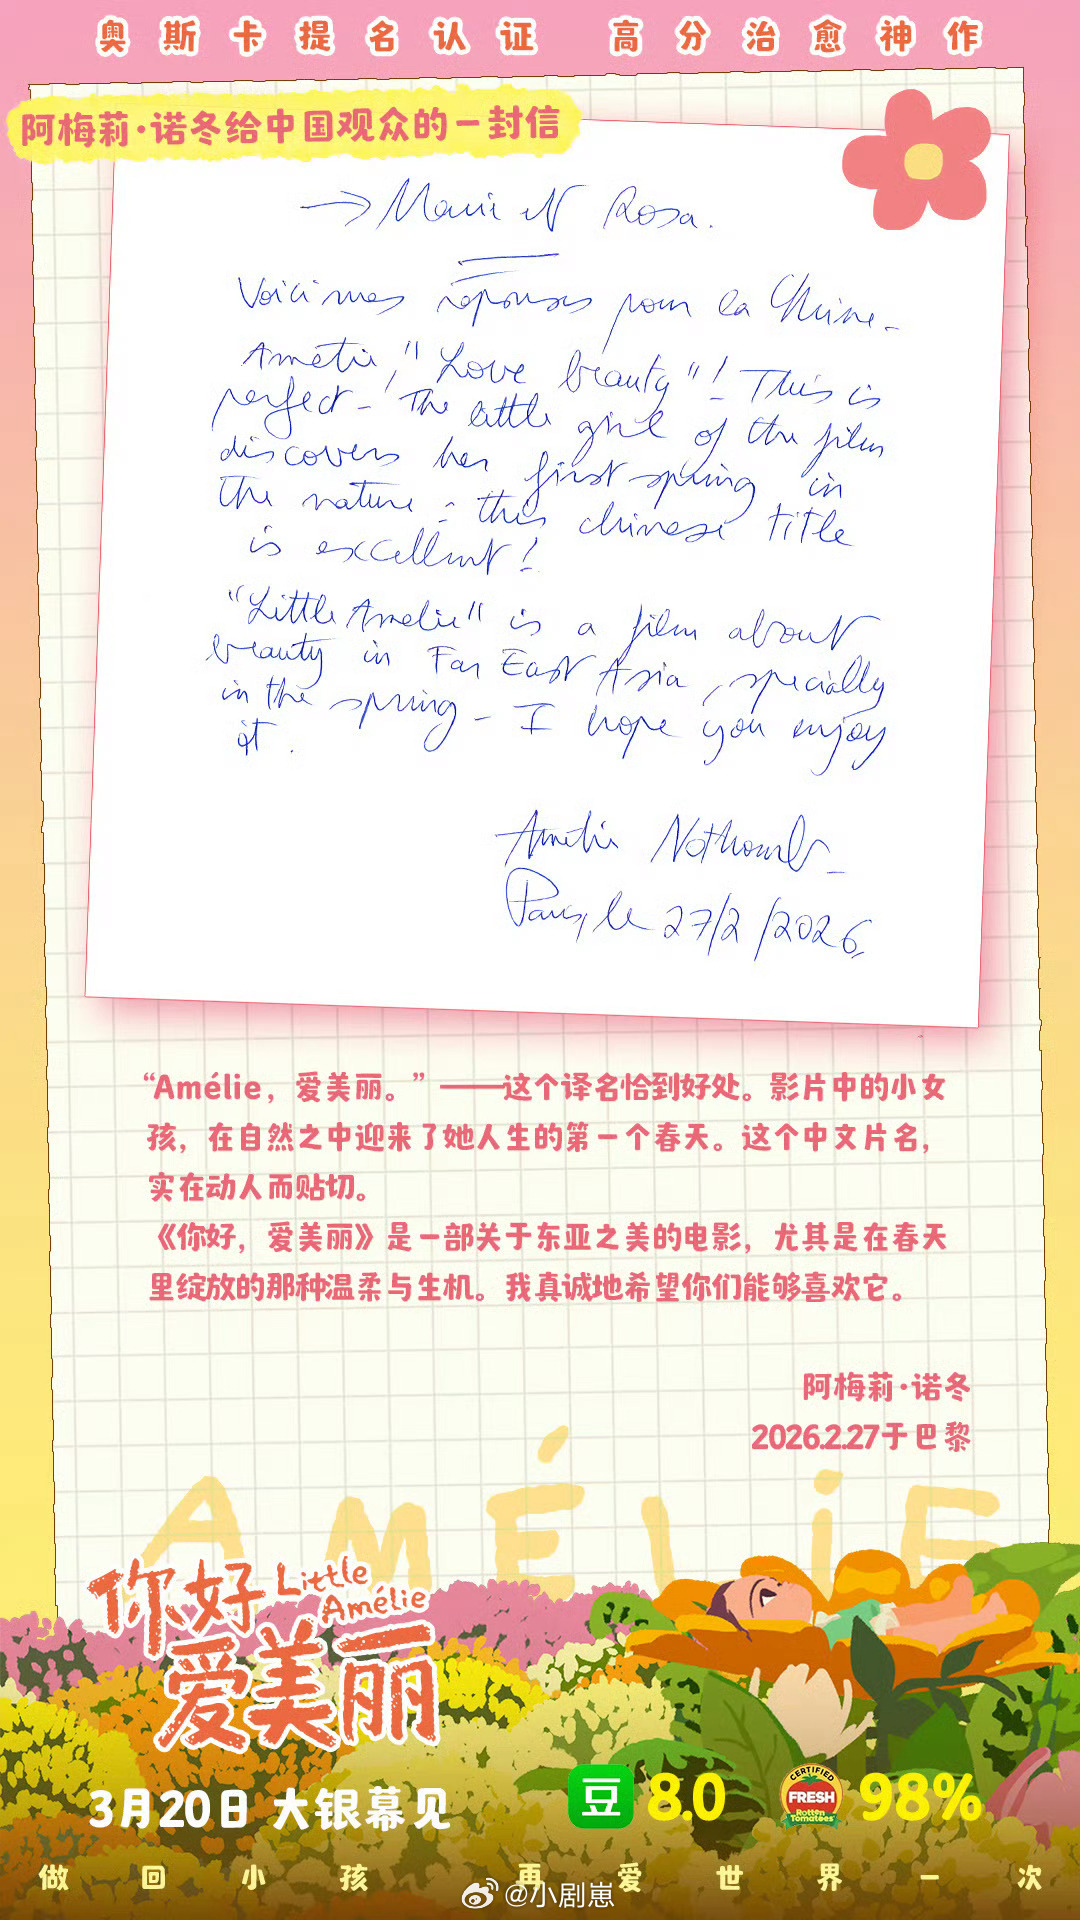 奥斯卡提名认证 高分治愈神作
阿梅莉·诺冬给中国观众的一封信
→ Marie et Rosa.
Voici mes réponses pour la Chine.
Amélie, "Love beauty"! This is
perfect - The little girl of the film
discovers her first spring in
the nature - this chinese title
is excellent!
"Little Amélie" is a film about
beauty in Far East Asia, specially
in the spring - I hope you enjoy
it.
Amélie Nothomb
Paris, le 27/2/2026
“Amélie，爱美丽。”——这个译名恰到好处。影片中的小女
孩，在自然之中迎来了她人生的第一个春天。这个中文片名，
实在动人而贴切。
《你好，爱美丽》是一部关于东亚之美的电影，尤其是在春天
里绽放的那种温柔与生机。我真诚地希望你们能够喜欢它。
阿梅莉·诺冬
2026.2.27于巴黎
AMÉLiE
你好 Little
Amélie
爱美丽
3月20日 大银幕见
豆 8.0 CERTIFIED FRESH Rotten Tomatoes 98%
做回小孩 再爱世界一次
@小剧崽